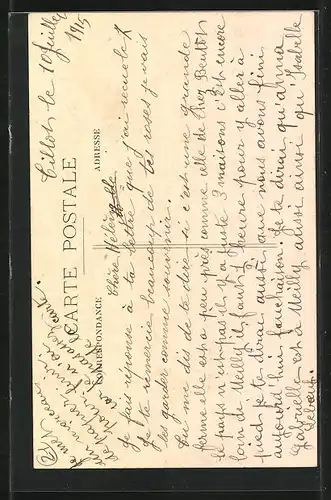 Tillot le 10 Juillet
1915
CARTE POSTALE
CORRESPONDANCE
ADRESSE
Chère Hélène
Je fais réponse à ta lettre que j'ai reçue le
je te remercie beaucoup de tes roses je vais
les garder comme souvenir.
Tu me dis de te dire si c'est une grande
ferme elle est a peu près comme celle de chez
le pays n'est pas il y a juste 3 maisons c'est encore
loin de Meilly il faut 1 heure pour y aller à
pied je te dirai aussi que nous avons fini
aujourd'hui fauchaison. Je te dirai qu'Anna
Gabrielle est à Meilly aussi ainsi qu'Isabelle
Lebeuf.